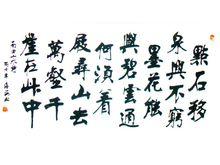 點石移
泉興不窮
墨花能
與碧雲通
何須着
屐尋山去
萬壑千
崖在此中